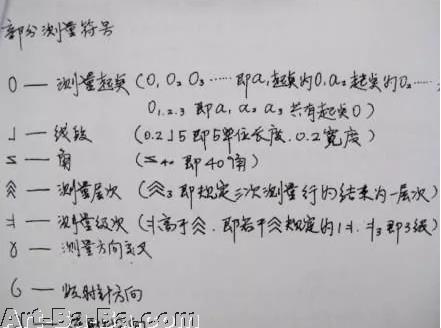 部分测量符号
O — 测量起点 (O, O₂ O₃ …… 即 a₁ 起点为O, a₂ 起点为O₂ ……
O₁.₂.₃ 即 a₁ a₂ a₃ 共有起点O)
」— 线段 (0.2」5 即5单位长度. 0.2宽度)
≤ — 角 (≤₄₀ 即40角)
— 测量层次 (₃ 即规定三次测量行的结果为一层次)
— 测量级次 (高于, 即若干规定的1, ₃即3级)
γ — 测量方向定义
G — 顺时针方向
Art-Ba-Ba.com